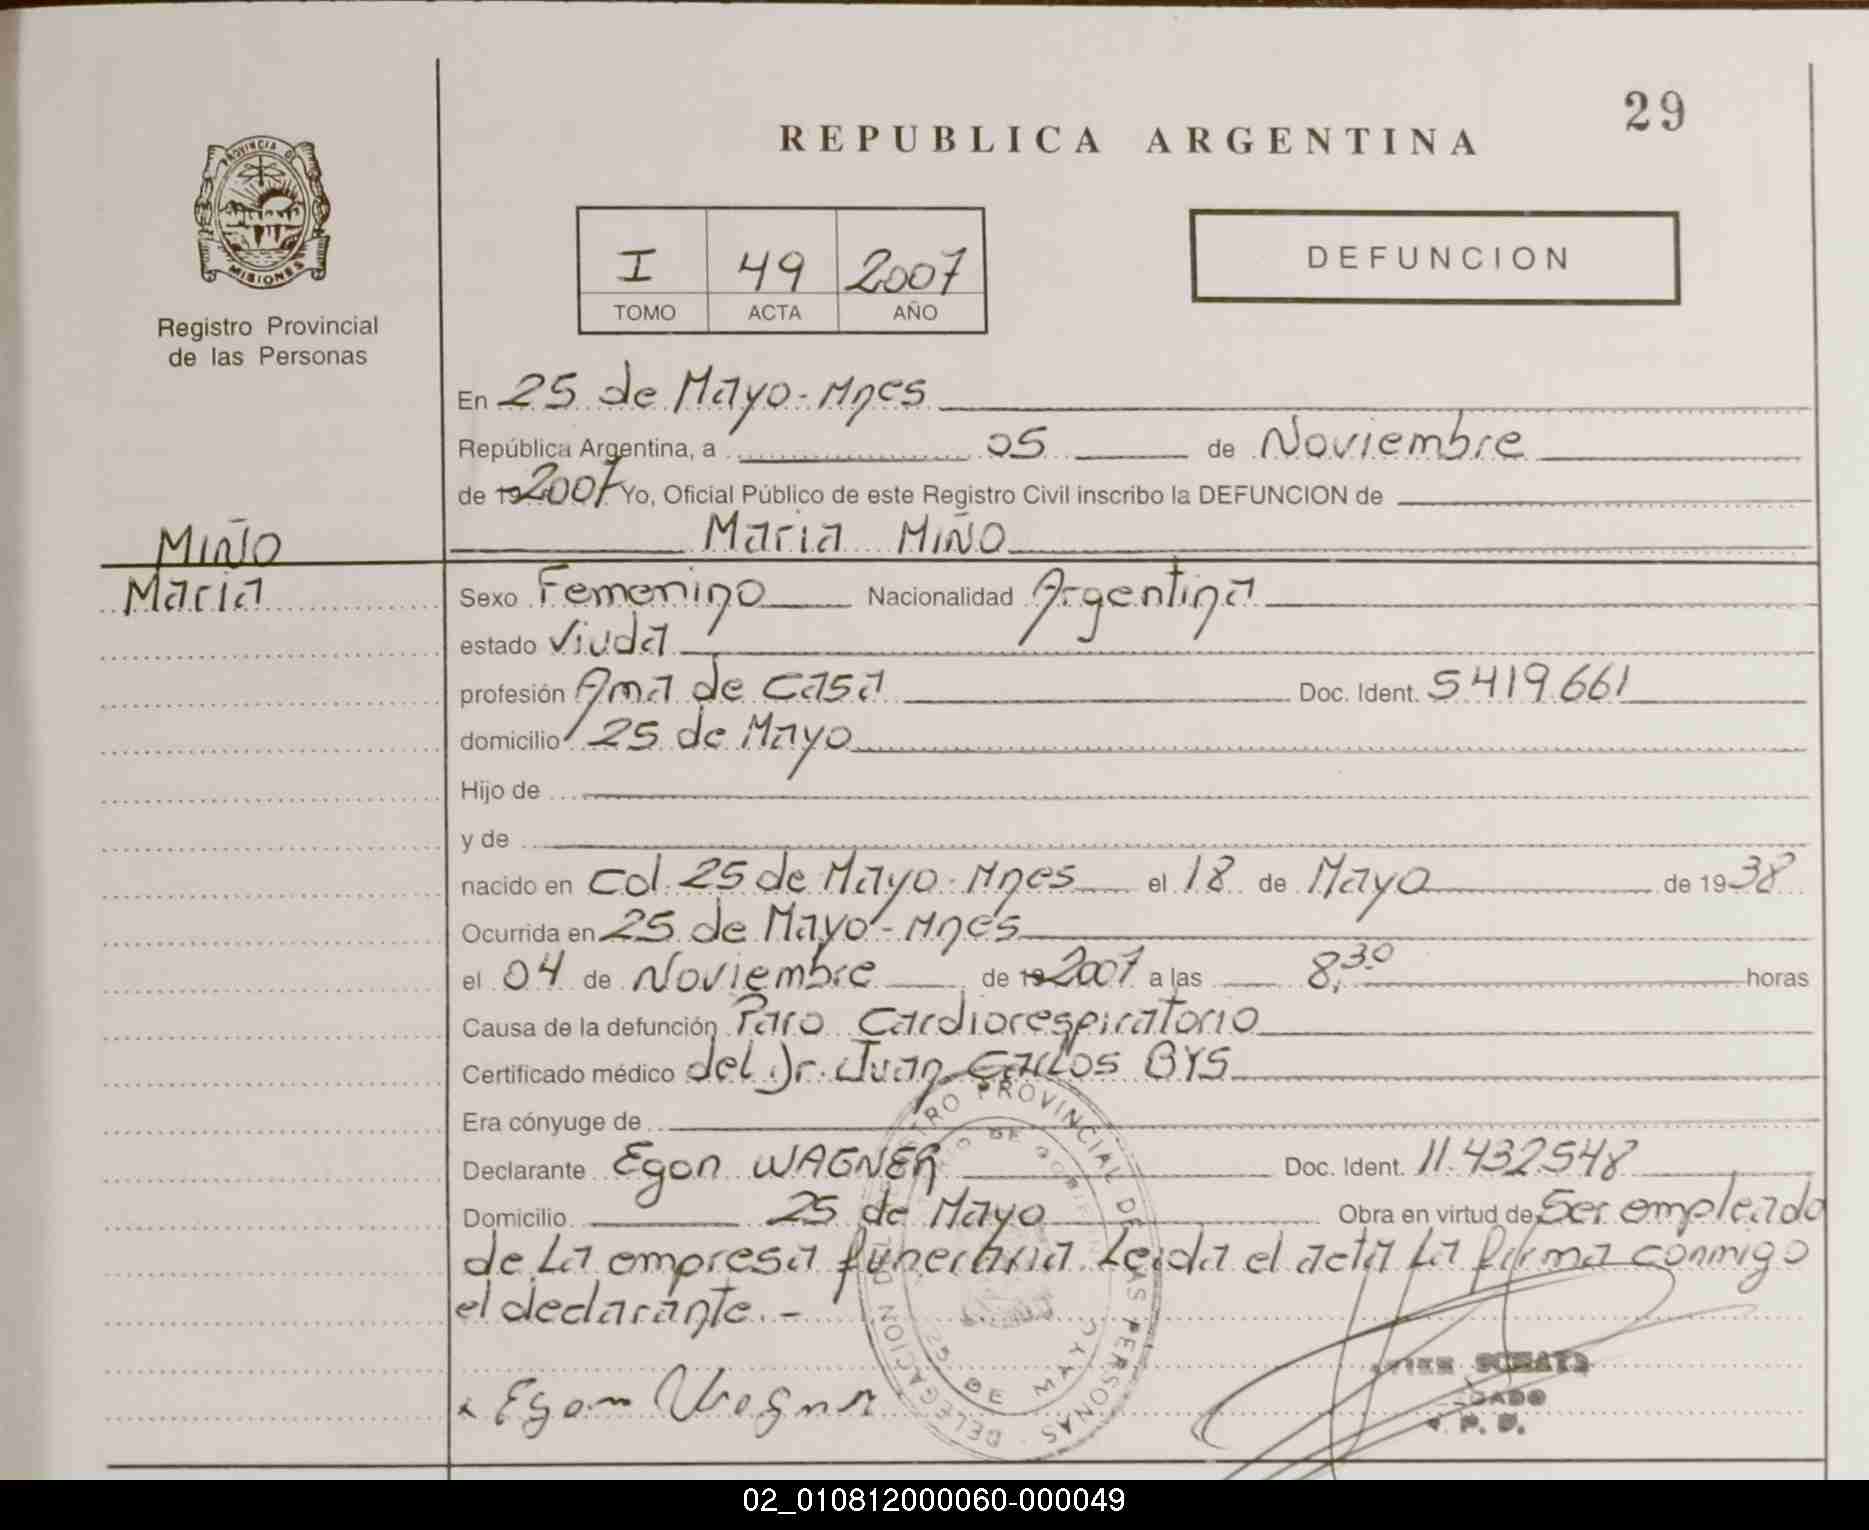 29
REPUBLICA ARGENTINA
PROVINCIA DE
MISIONES
Registro Provincial
de las Personas
I 49 2007
TOMO ACTA AÑO
DEFUNCION
En 25 de Mayo - Mnes
República Argentina, a 05 de Noviembre
de 19 2007 Yo, Oficial Público de este Registro Civil inscribo la DEFUNCION de
MIÑO
Maria MIÑO
Maria
Sexo Femenino Nacionalidad Argentina
estado Viuda
profesión Ama de casa Doc. Ident. 5419.661
domicilio 25 de Mayo
Hijo de
y de
nacido en Col. 25 de Mayo - Mnes el 18 de Mayo de 1938
Ocurrida en 25 de Mayo - Mnes
el 04 de Noviembre de 19 2007 a las 8,30 horas
Causa de la defunción Paro Cardiorespiratorio
Certificado médico del Dr. Juan Carlos BYS
Era cónyuge de
Declarante Egon WAGNER Doc. Ident. 11.432548
Domicilio 25 de Mayo Obra en virtud de Ser empleado
de La empresa funeraria. Leida el acta la firma conmigo
el declarante. -
PROVINCIAL DE LAS PERSONAS · DELEGACION
25 DE MAYO
x Egon Wagner
02_010812000060-000049